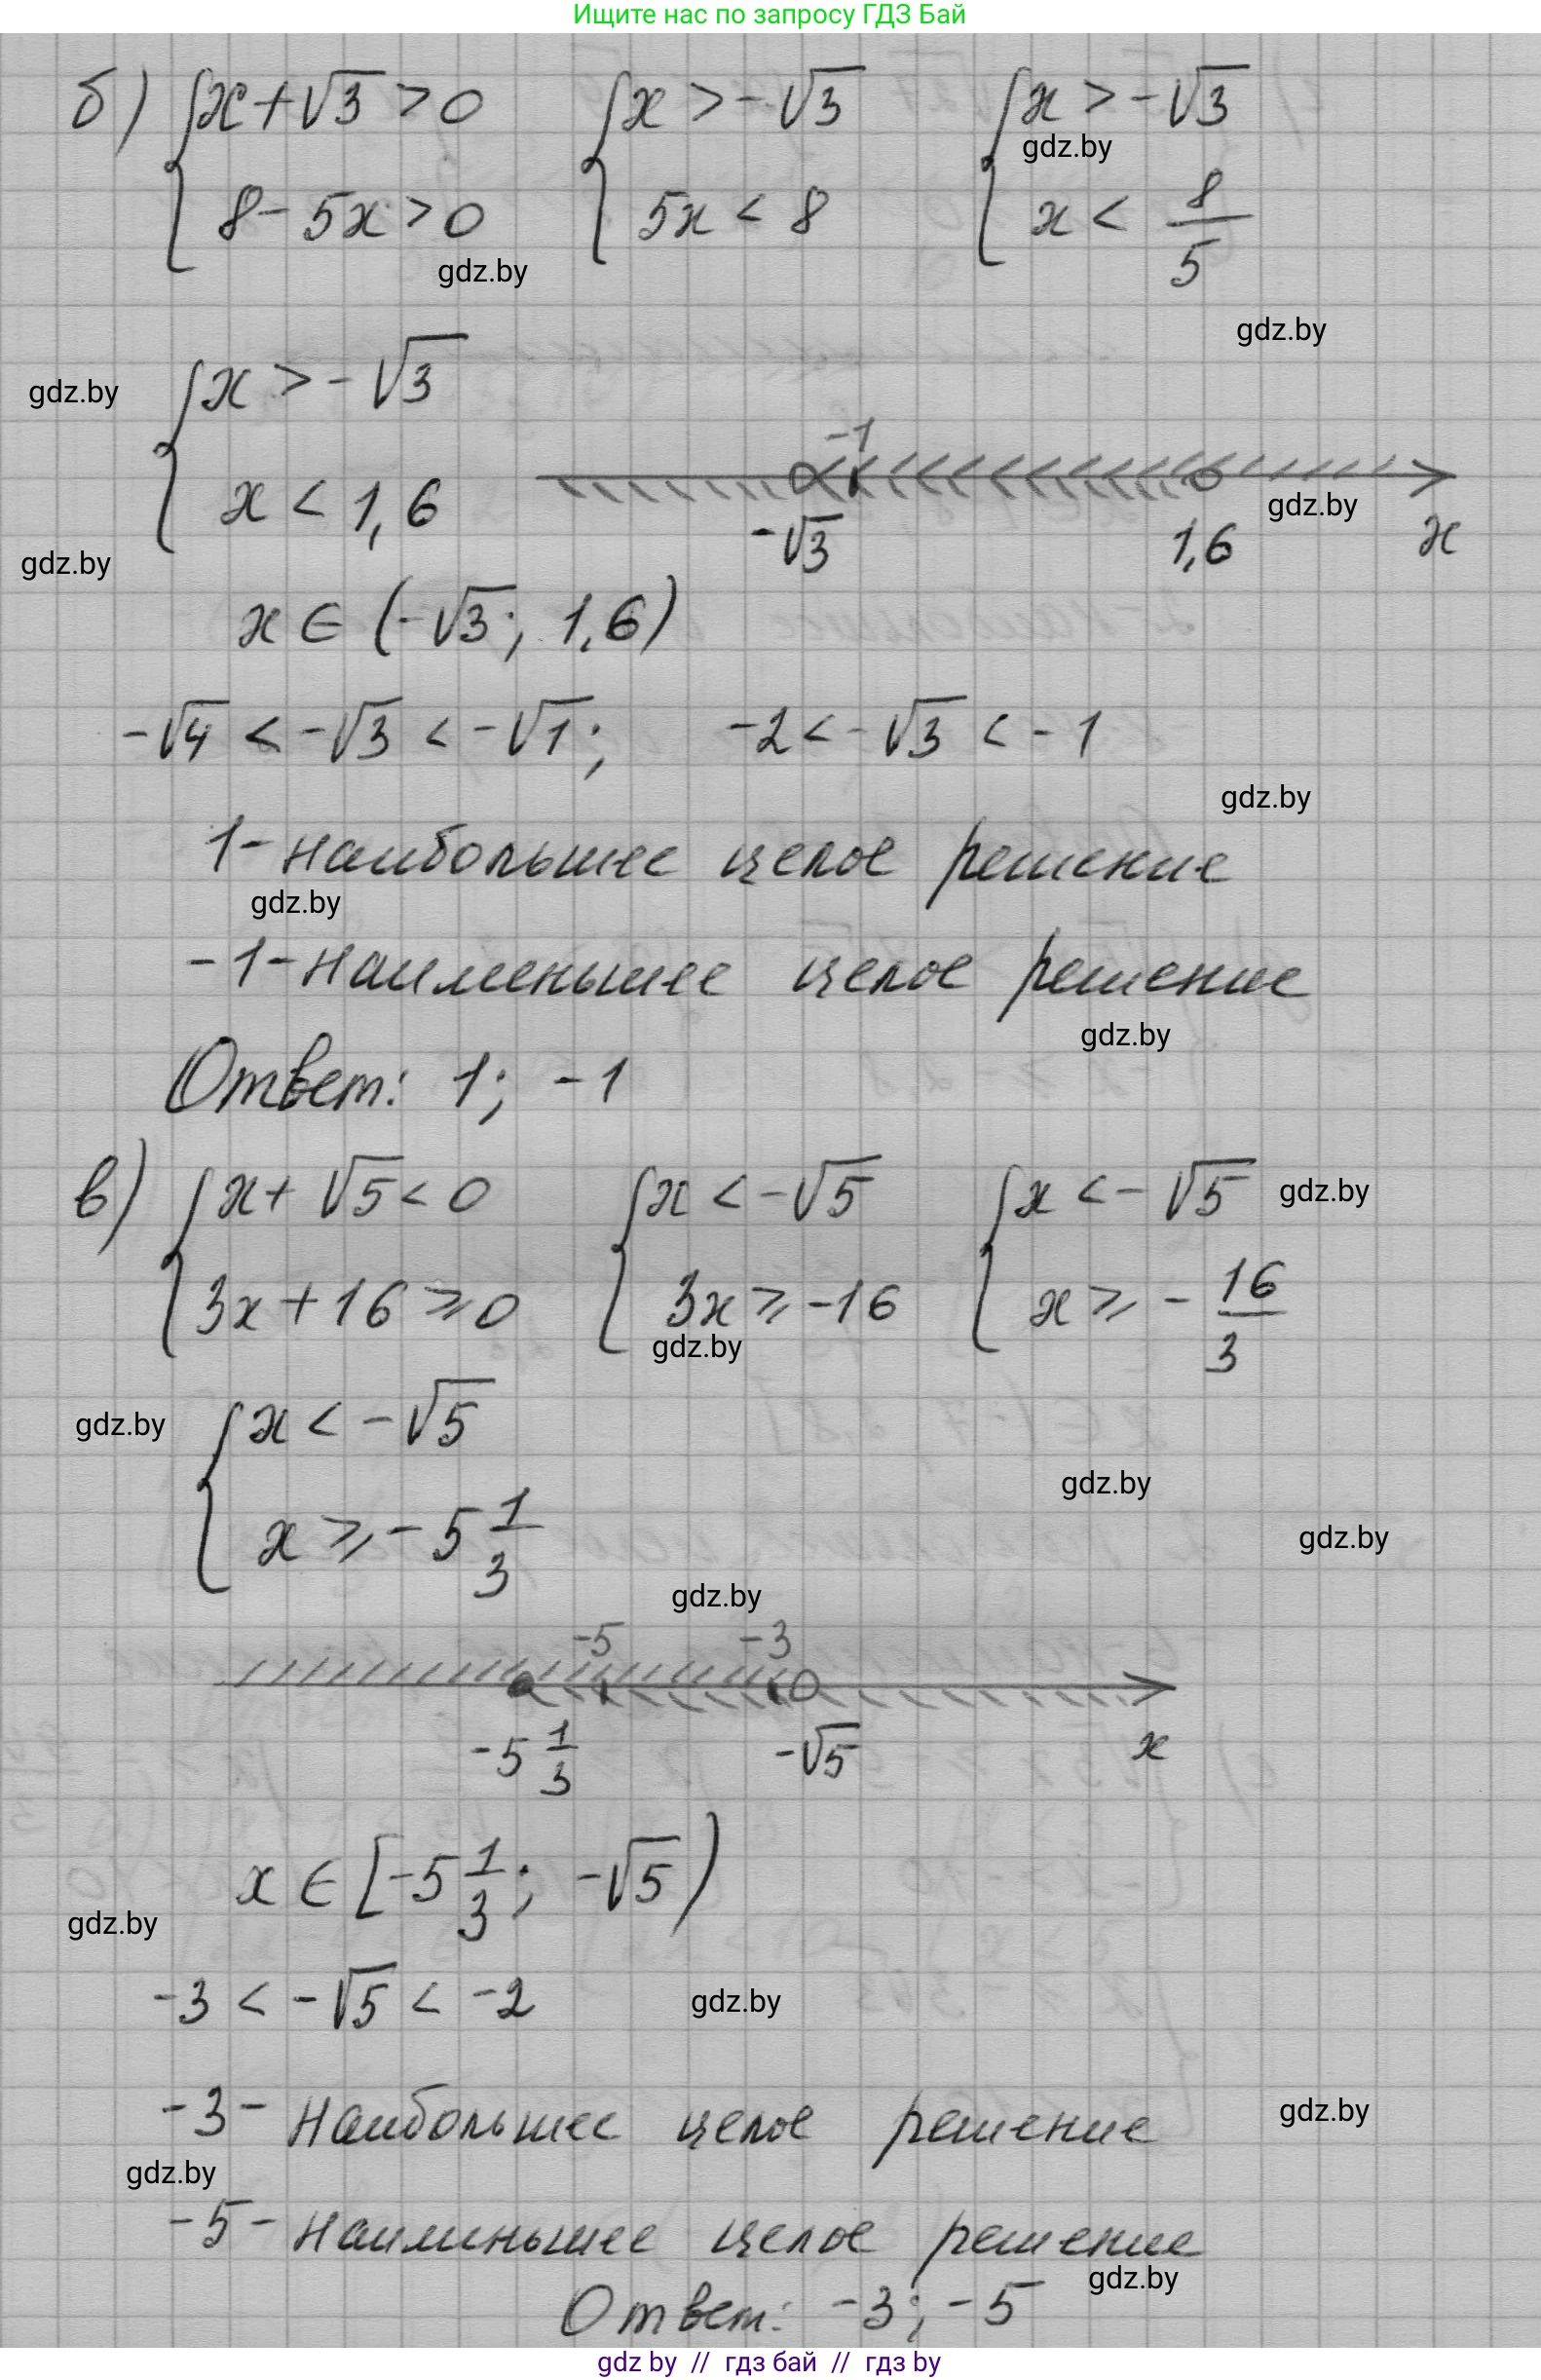 Ищите нас по запросу ГДЗ Бай
б) { x + √3 > 0   { x > -√3   { x > -√3
gdz.by
8 - 5x > 0   5x < 8   x < 8/5
gdz.by
gdz.by
{ x > -√3
gdz.by
-1
x < 1,6
gdz.by
-√3   1,6   x
gdz.by
x ∈ (-√3; 1,6)
-√4 < -√3 < -√1;   -2 < -√3 < -1
gdz.by
1 - наибольшее целое решение
gdz.by
-1 - наименьшее целое решение
gdz.by
Ответ: 1; -1
в) { x + √5 < 0   { x < -√5   { x < -√5
gdz.by
3x + 16 ⩾ 0   3x ⩾ -16   x ⩾ - 16/3
gdz.by
{ x < -√5
gdz.by
gdz.by
x ⩾ -5 1/3
gdz.by
gdz.by
-5   -3
-5 1/3   -√5   x
x ∈ [-5 1/3; -√5)
gdz.by
-3 < -√5 < -2
gdz.by
-3 - наибольшее целое решение
gdz.by
gdz.by
-5 - наименьшее целое решение
gdz.by
Ответ: -3; -5
gdz by // гдз бай // гдз by